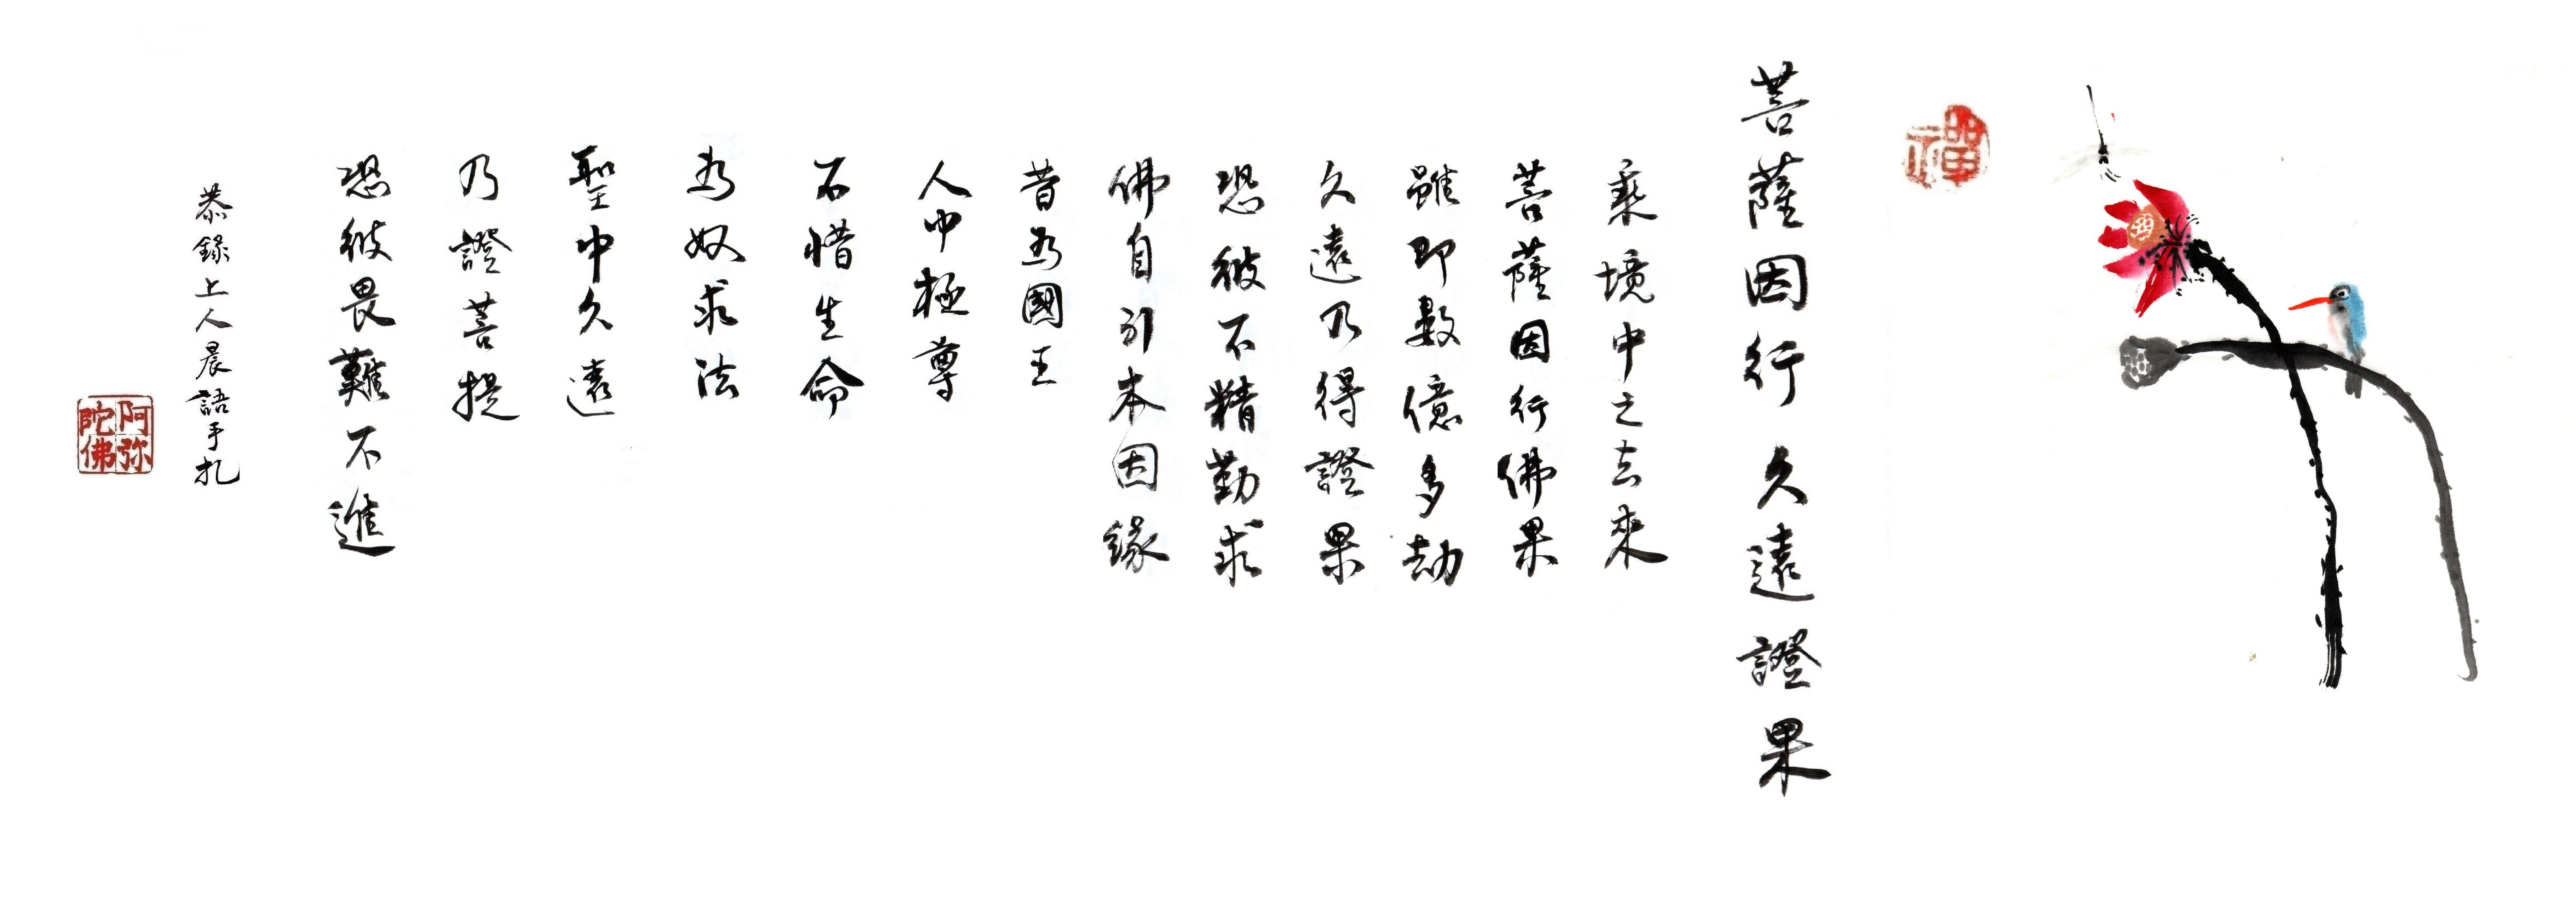 禪
菩薩因行久遠證果
乘境中之去來
菩薩因行佛果
雖即數億多劫
久遠乃得證果
恐彼不精勤求
佛自引本因緣
昔為國王
人中極尊
不惜生命
為奴求法
聖中久遠
乃證菩提
恐彼畏難不進
恭錄上人晨語手札
阿弥陀佛